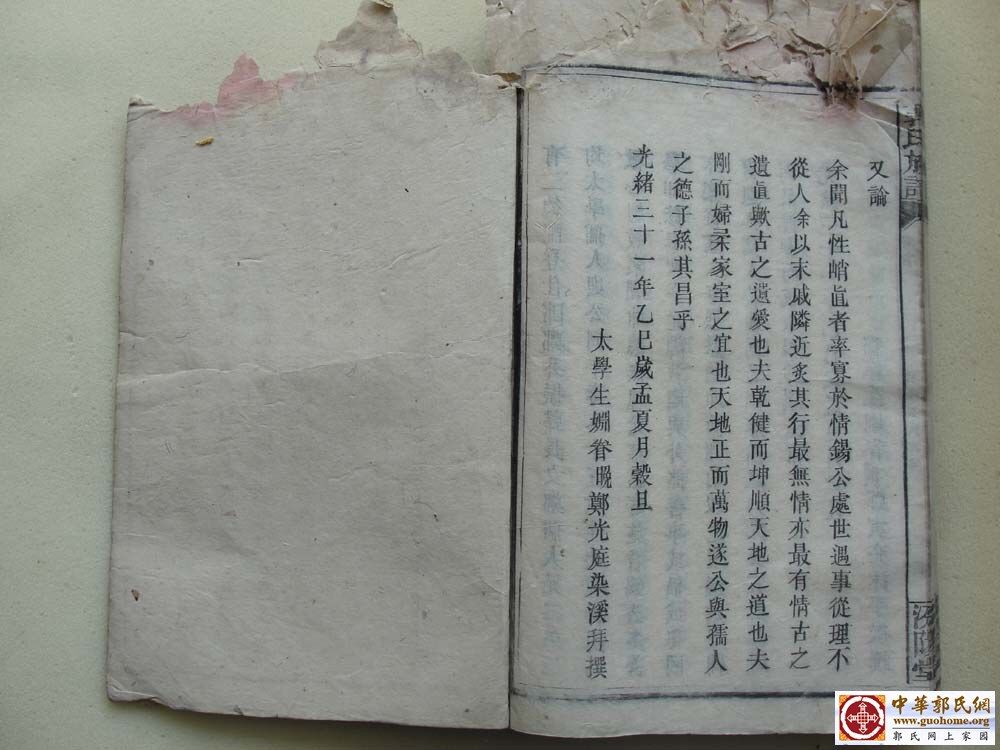 又論
余聞凡性峭直者率寡於情錫公處世遇事從理不
從人余以末戚隣近炙其行最無情亦最有情古之
遺直歟古之遺愛也夫乾健而坤順天地之道也夫
剛而婦柔家室之宜也天地正而萬物遂公與孺人
之德子孫其昌乎
光緒三十一年乙巳歲孟夏月穀旦
太學生姻眷晚鄭光庭染溪拜撰
氏族譜
汾陽堂
中華郭氏網
www.guohome.org
郭氏網上家園